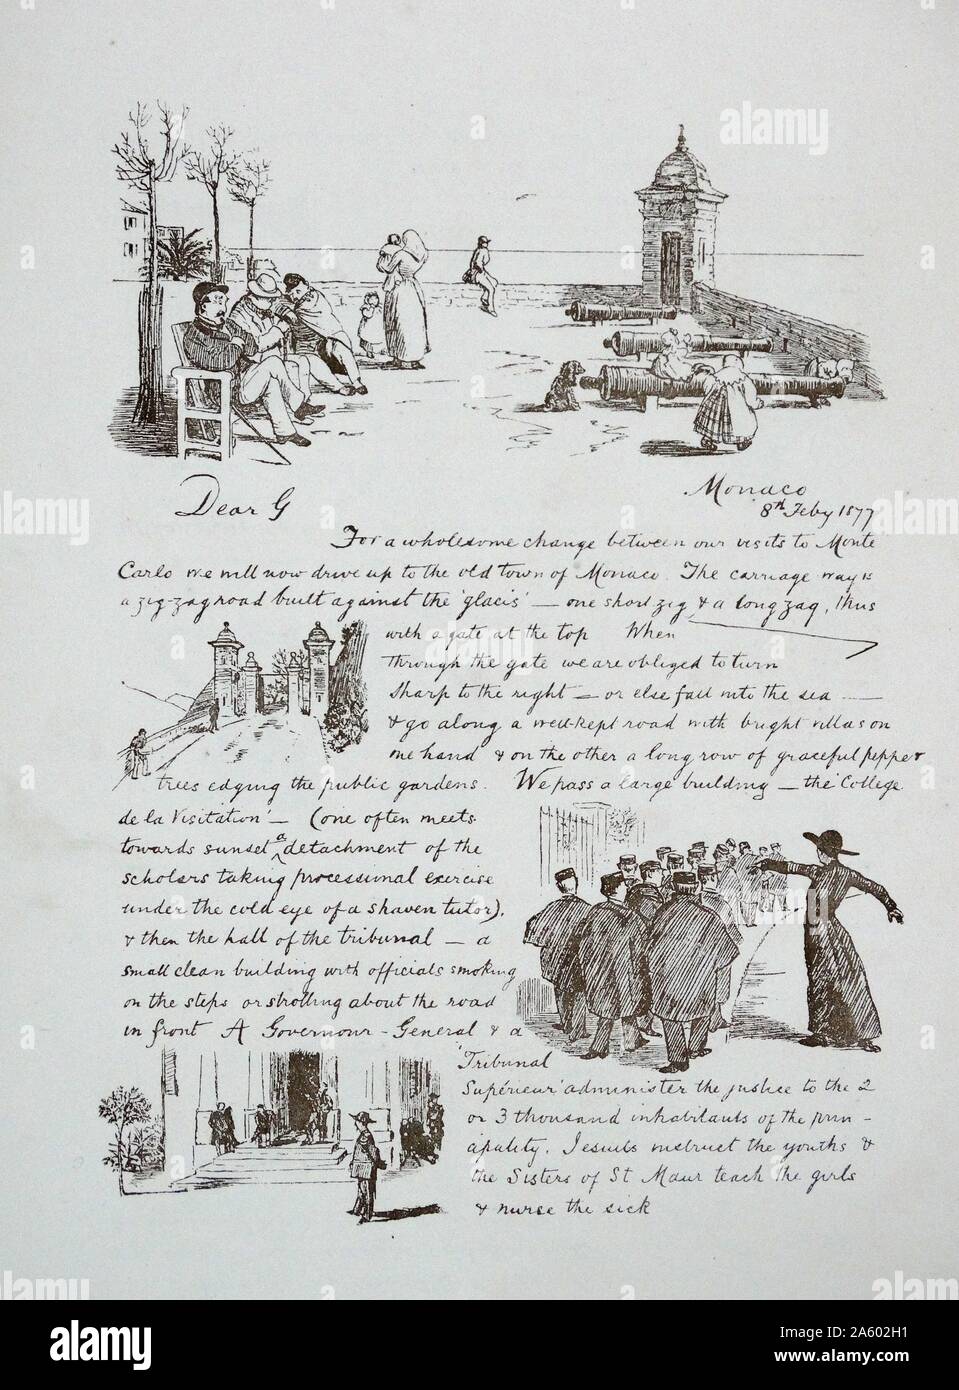 Dear G
Monaco
8th Feby 1877
For a wholesome change between our visits to Monte
Carlo we will now drive up to the old town of Monaco. The carriage way is
a zig-zag road built against the 'glacis' — one short zig & a long zag, thus
with a gate at the top When
through the gate we are obliged to turn
sharp to the right — or else fall into the sea —
& go along a well-kept road with bright villas on
one hand & on the other a long row of graceful pepper
trees edging the public gardens. We pass a large building — the 'College
de la Visitation' — (one often meets
towards sunset a detachment of the
scholars taking processional exercise
under the cold eye of a shaven tutor),
& then the hall of the tribunal — a
small clean building with officials smoking
on the steps or strolling about the road
in front A Governour-General & a
'Tribunal
Supérieur' administer the justice to the 2
or 3 thousand inhabitants of the prin-
cipality. Jesuits instruct the youths &
the Sisters of St Maur teach the girls
& nurse the sick
alamy
alamy
alamy
alamy
Image ID: 2A602H1
www.alamy.com